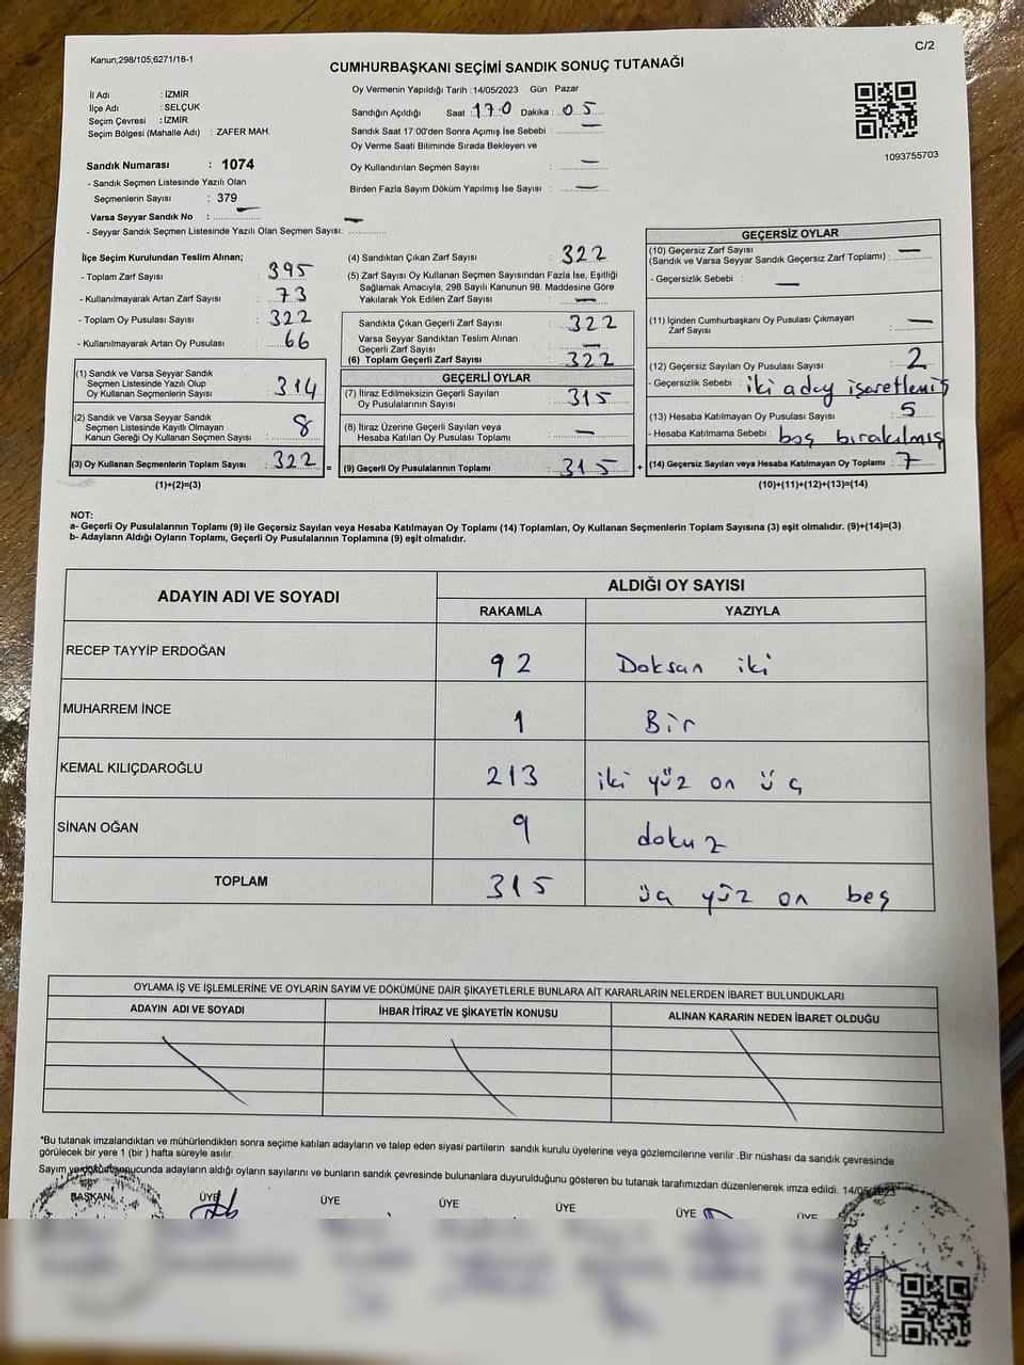 Kanun,298/105,6271/18-1
C/2
CUMHURBAŞKANI SEÇİMİ SANDIK SONUÇ TUTANAĞI
İl Adı : İZMİR
İlçe Adı : SELÇUK
Seçim Çevresi : İZMİR
Seçim Bölgesi (Mahalle Adı) : ZAFER MAH.
Sandık Numarası : 1074
- Sandık Seçmen Listesinde Yazılı Olan
Seçmenlerin Sayısı : 379
Varsa Seyyar Sandık No : —
- Seyyar Sandık Seçmen Listesinde Yazılı Olan Seçmen Sayısı: —
Oy Vermenin Yapıldığı Tarih :14/05/2023 Gün Pazar
Sandığın Açıldığı Saat : 17.0 Dakika : 05
Sandık Saat 17:00'den Sonra Açımış İse Sebebi : —
Oy Verme Saati Bitiminde Sırada Bekleyen ve
Oy Kullandırılan Seçmen Sayısı : —
Birden Fazla Sayım Döküm Yapılmış İse Sayısı : —
1093755703
İlçe Seçim Kurulundan Teslim Alınan;
- Toplam Zarf Sayısı : 395
- Kullanılmayarak Artan Zarf Sayısı : 73
- Toplam Oy Pusulası Sayısı : 322
- Kullanılmayarak Artan Oy Pusulası : 66
(1) Sandık ve Varsa Seyyar Sandık
Seçmen Listesinde Yazılı Olup
Oy Kullanan Seçmenlerin Sayısı : 314
(2) Sandık ve Varsa Seyyar Sandık
Seçmen Listesinde Kayıtlı Olmayan
Kanun Gereği Oy Kullanan Seçmen Sayısı : 8
(3) Oy Kullanan Seçmenlerin Toplam Sayısı : 322 =
(1)+(2)=(3)
(4) Sandıktan Çıkan Zarf Sayısı : 322
(5) Zarf Sayısı Oy Kullanan Seçmen Sayısından Fazla İse, Eşitliği
Sağlamak Amacıyla, 298 Sayılı Kanunun 98. Maddesine Göre
Yakılarak Yok Edilen Zarf Sayısı : —
Sandıkta Çıkan Geçerli Zarf Sayısı : 322
Varsa Seyyar Sandıktan Teslim Alınan
Geçerli Zarf Sayısı : —
(6) Toplam Geçerli Zarf Sayısı : 322
GEÇERLİ OYLAR
(7) İtiraz Edilmeksizin Geçerli Sayılan
Oy Pusulalarının Sayısı : 315
(8) İtiraz Üzerine Geçerli Sayılan veya
Hesaba Katılan Oy Pusulası Toplamı : —
(9) Geçerli Oy Pusulalarının Toplamı : 315 +
GEÇERSİZ OYLAR
(10) Geçersiz Zarf Sayısı
(Sandık ve Varsa Seyyar Sandık Geçersiz Zarf Toplamı) : —
- Geçersizlik Sebebi : —
(11) İçinden Cumhurbaşkanı Oy Pusulası Çıkmayan
Zarf Sayısı : —
(12) Geçersiz Sayılan Oy Pusulası Sayısı : 2
- Geçersizlik Sebebi : iki aday işaretlemiş
(13) Hesaba Katılmayan Oy Pusulası Sayısı : 5
- Hesaba Katılmama Sebebi : boş bırakılmış
(14) Geçersiz Sayılan veya Hesaba Katılmayan Oy Toplamı : 7
(10)+(11)+(12)+(13)=(14)
NOT:
a- Geçerli Oy Pusulalarının Toplamı (9) ile Geçersiz Sayılan veya Hesaba Katılmayan Oy Toplamı (14) Toplamları, Oy Kullanan Seçmenlerin Toplam Sayısına (3) eşit olmalıdır. (9)+(14)=(3)
b- Adayların Aldığı Oyların Toplamı, Geçerli Oy Pusulalarının Toplamına (9) eşit olmalıdır.
ADAYIN ADI VE SOYADI
ALDIĞI OY SAYISI
RAKAMLA YAZIYLA
RECEP TAYYİP ERDOĞAN 92 Doksan iki
MUHARREM İNCE 1 Bir
KEMAL KILIÇDAROĞLU 213 iki yüz on üç
SİNAN OĞAN 9 dokuz
TOPLAM 315 üç yüz on beş
OYLAMA İŞ VE İŞLEMLERİNE VE OYLARIN SAYIM VE DÖKÜMÜNE DAİR ŞİKAYETLERLE BUNLARA AİT KARARLARIN NELERDEN İBARET BULUNDUKLARI
ADAYIN ADI VE SOYADI İHBAR İTİRAZ VE ŞİKAYETİN KONUSU ALINAN KARARIN NEDEN İBARET OLDUĞU
*Bu tutanak imzalandıktan ve mühürlendikten sonra seçime katılan adayların ve talep eden siyasi partilerin sandık kurulu üyelerine veya gözlemcilerine verilir .Bir nüshası da sandık çevresinde
görülecek bir yere 1 (bir ) hafta süreyle asılır.
Sayım ve döküm sonucunda adayların aldığı oyların sayılarını ve bunların sandık çevresinde bulunanlara duyurulduğunu gösteren bu tutanak tarafımızdan düzenlenerek imza edildi. 14/05/2023
BAŞKAN ÜYE ÜYE ÜYE ÜYE ÜYE ÜYE